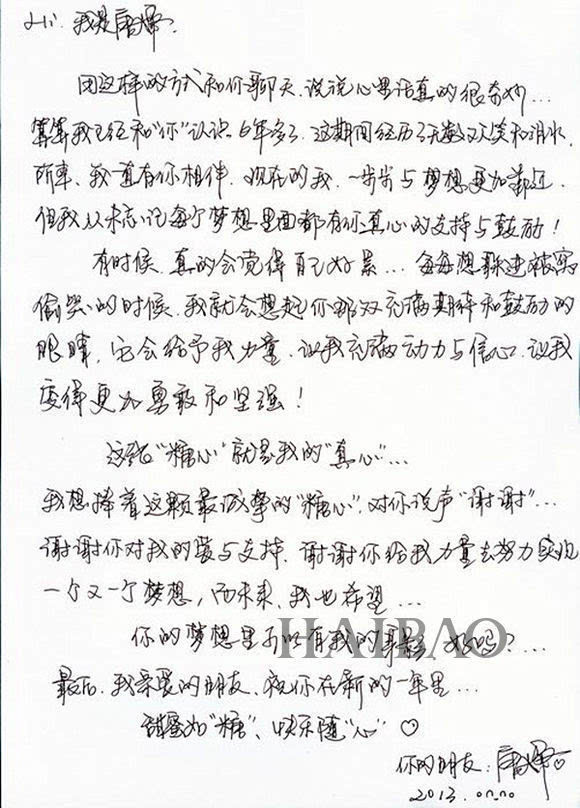 Hi. 我是唐嫣.
用这样的方式和你聊天. 说说心里话真的很奇妙...
算算我已经和"你"认识. 6年多了. 这期间经历了无数欢笑和泪水.
所幸. 我一直有你相伴. 现在的我. 一步步与梦想更加靠近.
但我从未忘记每个梦想里面都有你真心的支持与鼓励!
有时候. 真的会觉得自己好累... 每每想躲进被窝
偷哭的时候. 我就会想起你那双充满期待和鼓励的
眼睛, 它会给予我力量. 让我充满动力与信心. 让我
变得更加勇敢和坚强!
这张"糖心"就是我的"真心"...
我想捧着这颗最诚挚的"糖心". 对你说声"谢谢"...
谢谢你对我的爱与支持. 谢谢你给我力量去努力实现
一个又一个梦想, 而未来. 我也希望...
你的梦想里可以有我的身影 好吗?...
最后. 我亲爱的朋友. 祝你在新的一年里...
甜蜜如"糖"、快乐随"心" ♡
你的朋友: 唐嫣♡
2013.
HAIBAO